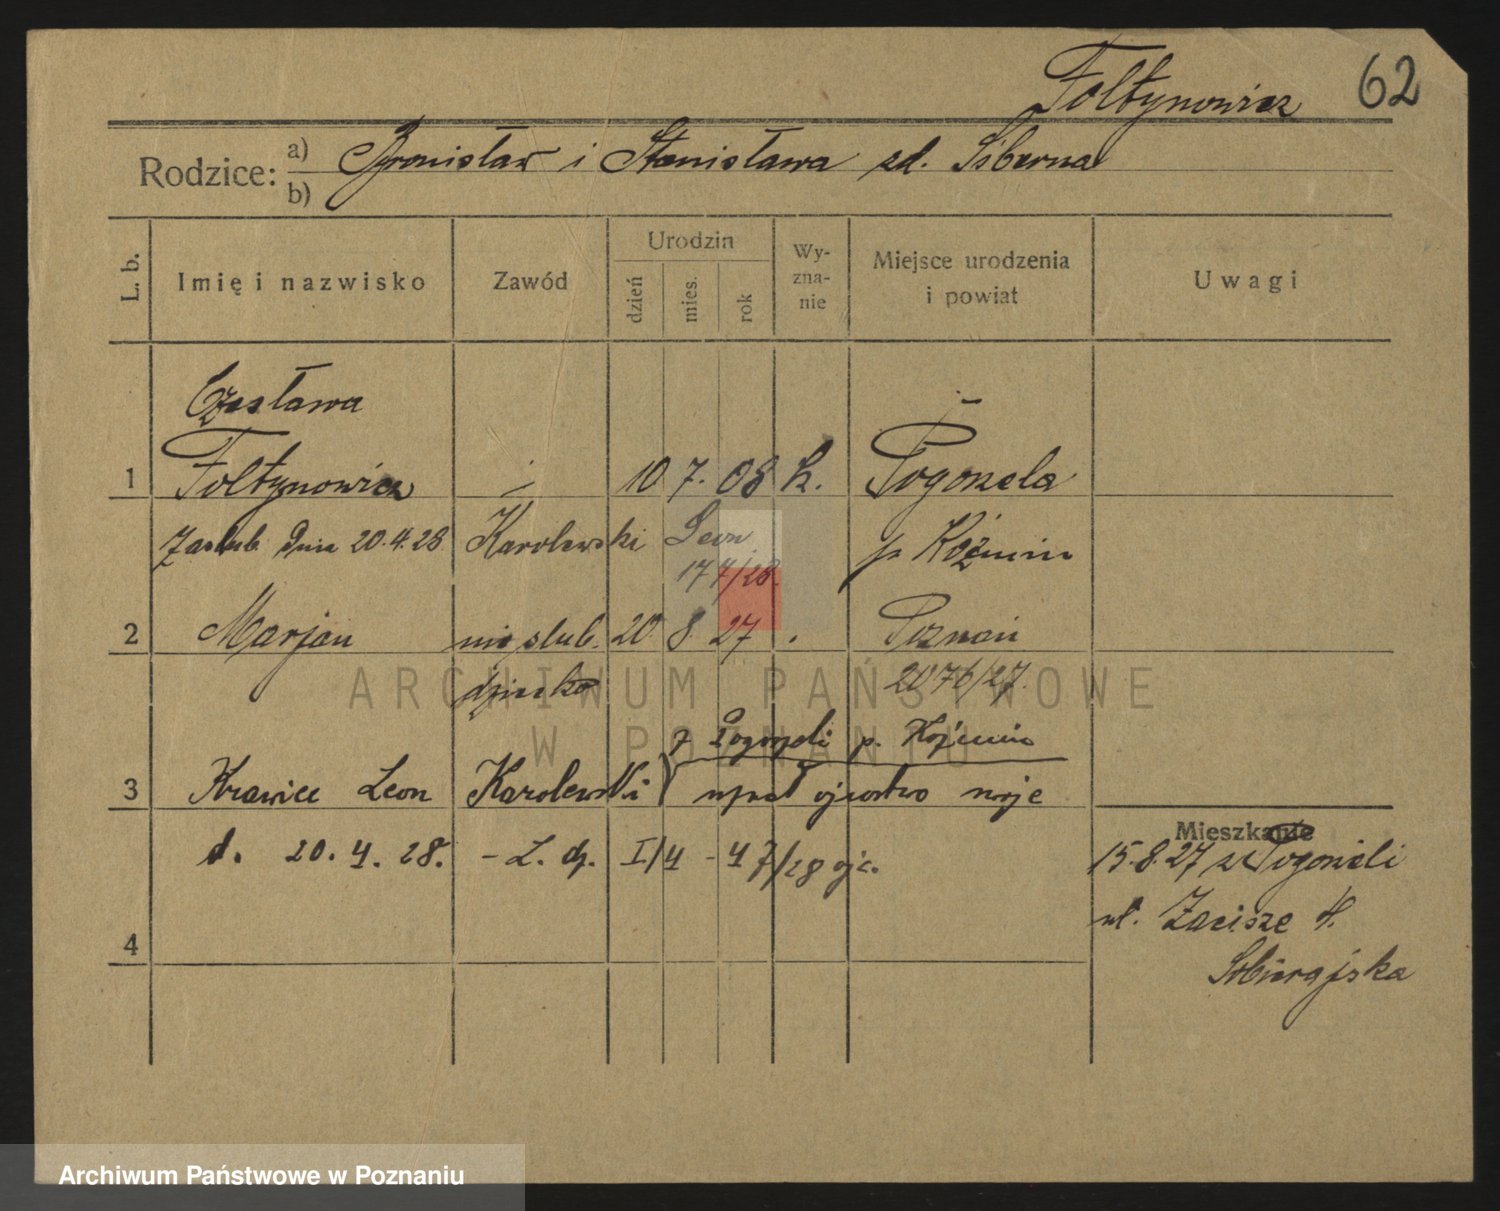 Fołtynowicz 62
Rodzice: a) Bronisław i Stanisława zd. Siberna
b)
L. b. Imię i nazwisko Zawód Urodzin dzień mies. rok Wyznanie Miejsce urodzenia i powiat Uwagi
Czesława
1 Fołtynowicz 10 7. 08 k. Pogorzela
Zaślub. dnia 20.4.28 Karolewski Leon p Koźmin
177/28.
2 Marjan nieślub. 20 8. 27 Poznań
dziecko 2076/27.
z Pogorzeli p. Koźmin
3 Krawiec Leon Karolewski uznał ojcostwo swoje
d. 20. 4. 28. - L. dz. I/4 - 47/28 ojc.
Mieszkanie
15.8.27 z Pogorzeli
ul. Zacisze 4.
4 Sobierajska
ARCHIWUM PAŃSTWOWE
W POZNANIU
Archiwum Państwowe w Poznaniu